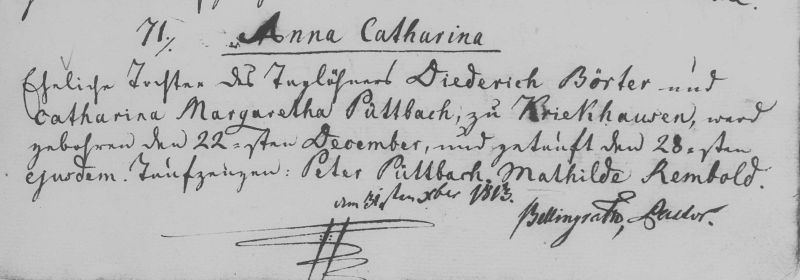 71./ Anna Catharina
Eheliche Tochter des Taglöhners Diederich Börter und
Catharina Margaretha Püttbach, zu Kriekhausen, ward
gebohren den 22-sten December, und getauft den 28-sten
ejusdem. Taufzeugen: Peter Püttbach. Mathilde Rembold.
am 31sten xber 1813.
Bellingrath, Pastor.